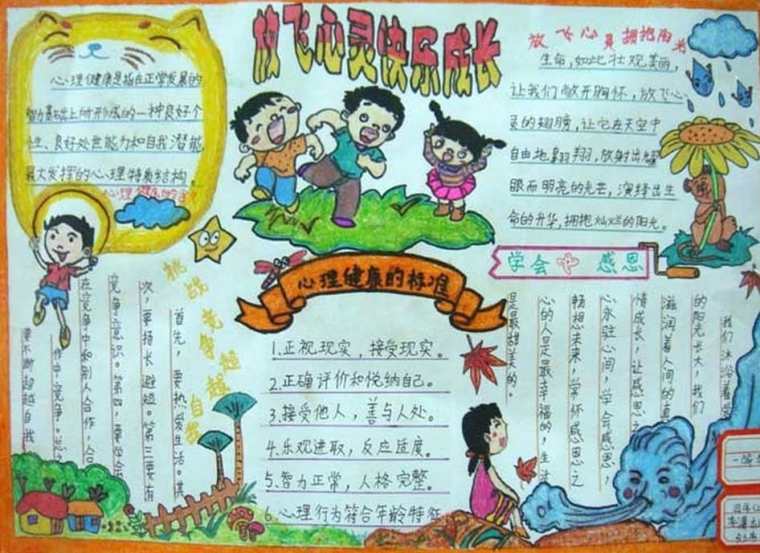 放飞心灵快乐成长
心理健康是指在正常发展的
智力基础上所形成的一种良好个
性、良好处世能力和自我潜能
最大发挥的心理特质结构。
放飞心灵拥抱阳光
生命,如此壮观美丽,
让我们敞开胸怀,放飞心
灵的翅膀,让它在天空中
自由地翱翔,放射出耀
眼而明亮的光芒,演绎出生
命的升华,拥抱灿烂的阳光。
心理健康的标准
1.正视现实,接受现实。
2.正确评价和悦纳自己。
3.接受他人,善与人处。
4.乐观进取,反应适度。
5.智力正常,人格完整。
6.心理行为符合年龄特征
挑战竞争超越自我
首先,要热爱生活。其
次,要扬长避短。第三要有
竞争意识。第四,要学会
在竞争中和别人合作,合
作中竞争。总之
要不断超越自我
学会 感恩
我们沐浴着
的阳光长大,我们
滋润着人间的真
情成长,让感恩之
心永驻心间,学会感恩,
畅想未来,常怀感恩之
心的人是最幸福的,生活
是最甜美的。